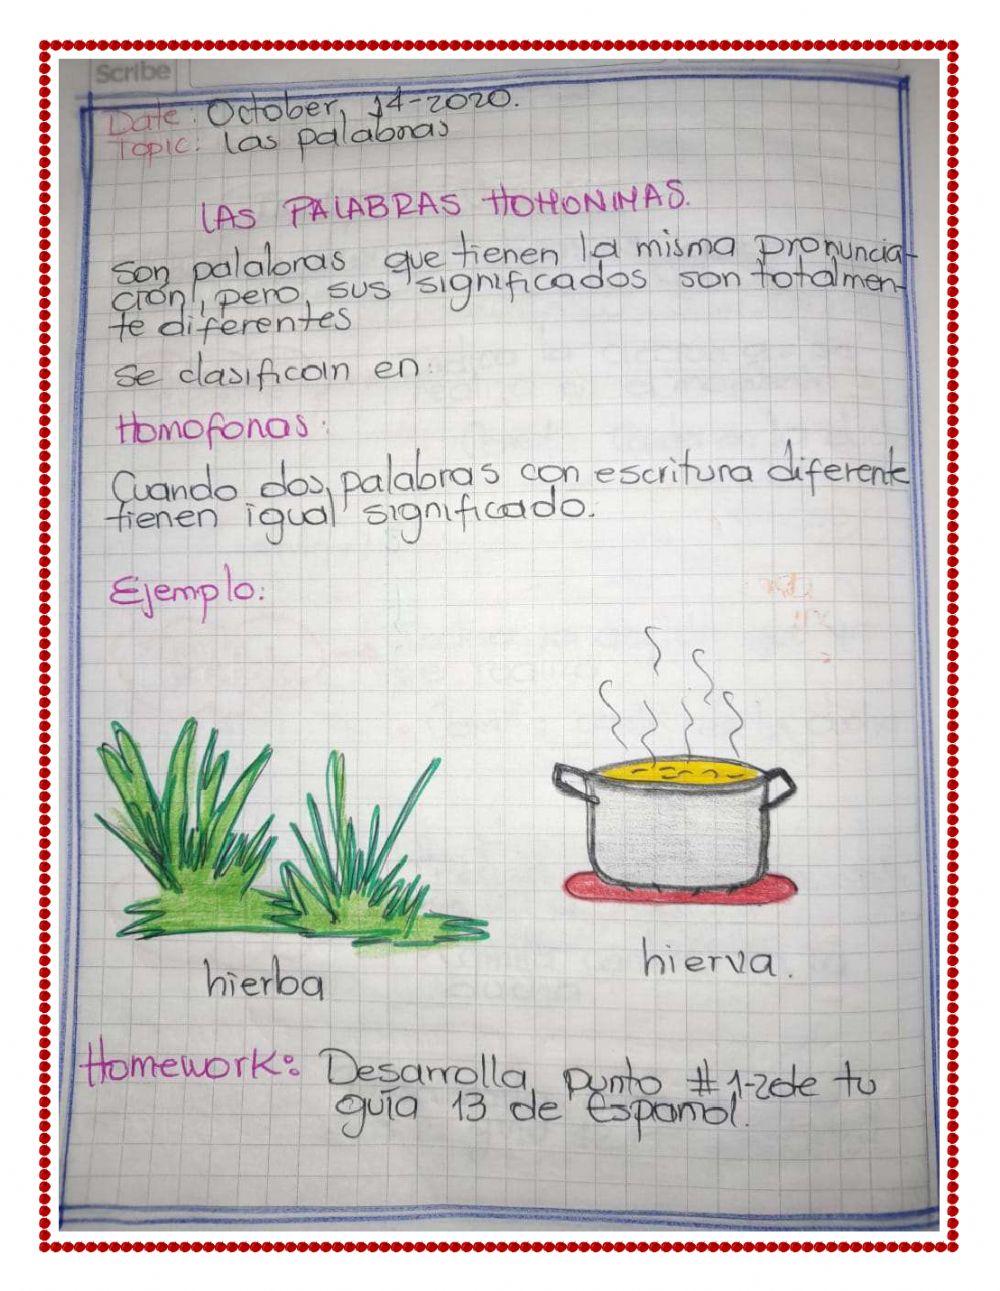 Scribe
Date: October, 14-2020.
Topic: las palabras
LAS PALABRAS HOMONIMAS.
Son palabras que tienen la misma pronuncia-
ción, pero, sus significados son totalmen-
te diferentes
Se clasifican en:
Homofonas:
Cuando dos palabras con escritura diferente
tienen igual significado.
Ejemplo:
hierba
hierva.
Homework: Desarrolla punto #1-2 de tu
guía 13 de Español.